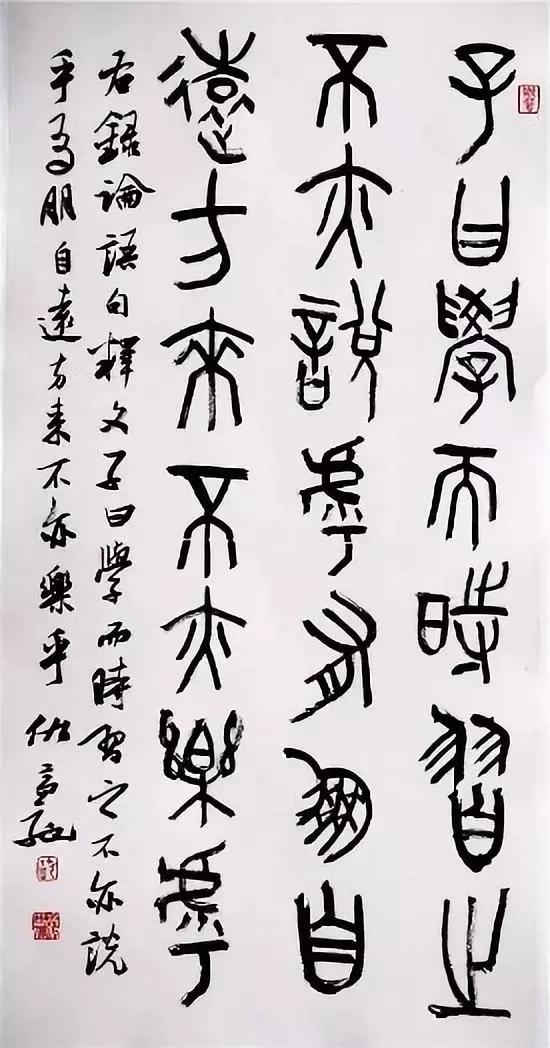 子曰學而時習之
不亦說乎有朋自
遠方來不亦樂乎
右錄論語句釋文子曰學而時習之不亦說
乎有朋自遠方來不亦樂乎